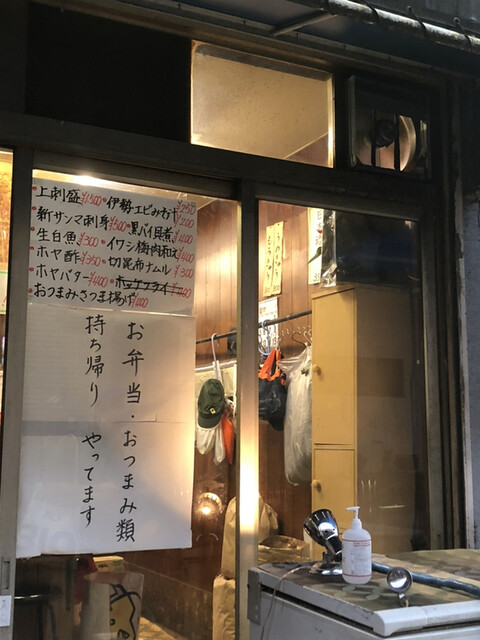 上刺盛¥1500 伊勢エビみそ汁¥250
新サンマ刺身¥500 黒バイ貝煮¥400
生白魚¥300 イワシ梅肉和え¥400
ホヤ酢¥350 切昆布ナムル¥300
ホヤバター¥400 ホッケフライ
おつまみさつま揚げ¥400
お弁当・おつまみ類
持ち帰り やってます